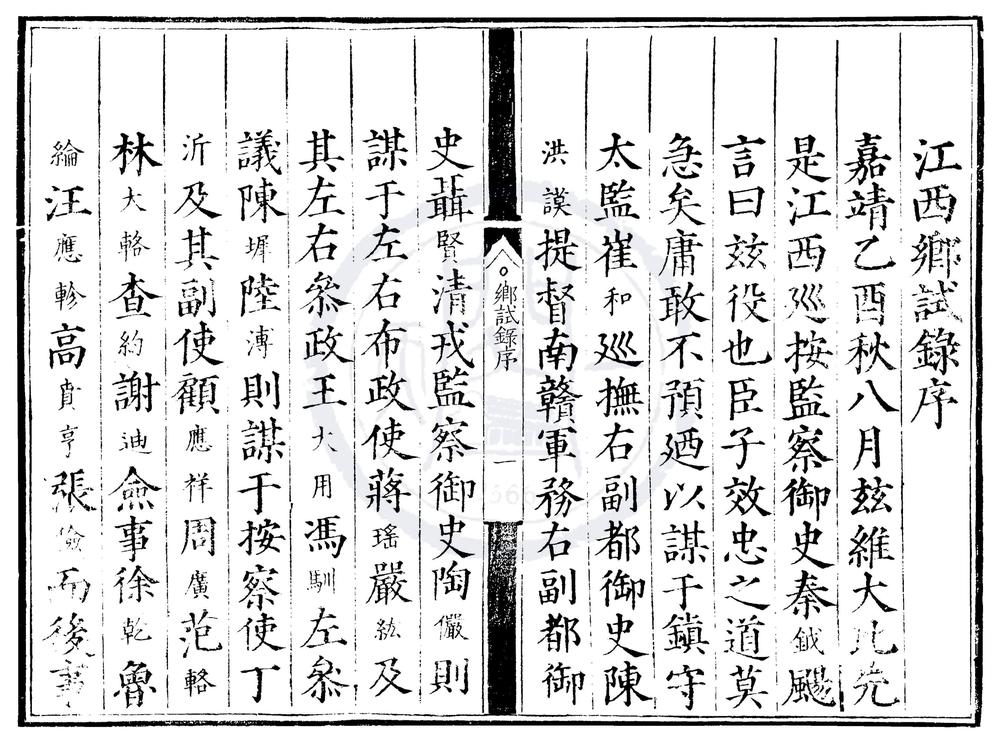 江西鄉試錄序
嘉靖乙酉秋八月玆維大比先
是江西廵按監察御史秦鉞颺
言曰玆役也臣子效忠之道莫
急矣庸敢不預廼以謀于鎮守
太監崔和廵撫右副都御史陳
洪謨提督南贛軍務右副都御
鄉試錄序
一
史聶賢清戎監察御史陶儼則
謀于左右布政使蔣瑤嚴紘及
其左右叅政王大用馮馴左叅
議陳墀陸溥則謀于按察使丁
沂及其副使顧應祥周廣范輅
林大輅查約謝迪僉事徐乾魯
綸汪應軫高賁亨張儉而後事